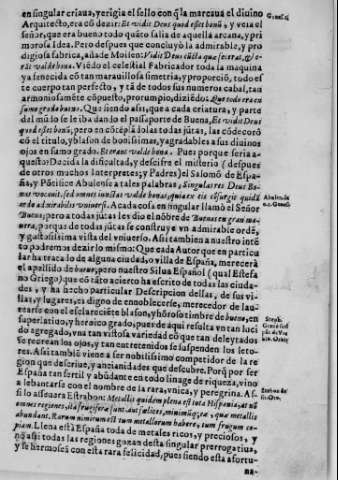 en singular criaua, y erigia el sello con q̃ la marcaua el diuino
Arquitecto, era cõ dezir: Et vidit Deus quod esset bonũ, y veìa el
señor, que era bueno todo quãto salia de aquella arcana, y pri
morosa Idea. Pero despues que concluyò la admirable, y pro
digiosa fabrica, añade Moisen: Vidit Deus cũcta quæ fecerat, & e-
rãt valde bona. Viédo el celestial Fabricador toda la maquina
ya fenecida cõ tan marauillosa simetria, y proporciõ, todo es
te cuerpo tan perfecto, y tã de todos sus numeros cabal, tan
armoniosamẽte cõpuesto, prorumpio, diziẽdo: Que todo era en
sumo grado bueno. Que siendo assi, que a cada criatura, y parte
del mũdo se le iba dando el passaporte de Buena, Et vidit Deus
quod esset bonũ, pero en cõtẽplãdolas todas jũtas, las cõdecorò
cõ el titulo, y blason de bonissimas, y agradables a sus diuinos
ojos en sumo grado. Et erant valde bona. Pues porque seria a-
questo? Decida la dificultad, y descifre el misterio (despues
de otros muchos Interpretes) y Padres) el Salomõ de Espa-
ña, y Põtifice Abulense a tales palabras, Singulares Deus Bo-
Abulen. de
nas vocauit, sed omnes iunctas valde bonas, quia ex eis cõsurgit quidã
ordo admirabilis vniuersi. A cada cosa en singular llamò el Señor
Bueno, pero a todas jũtas les dio el nõbre de Buenas en gran ma-
nera, porque de todas jũtas se construye vn admirable ordẽ,
y gustosissima vista del vniuerso. Assi tambien a nuestro intẽ
to podremos dezir lo mismo: Que cada Autor que en particu
lar ha tratado de alguna ciudad, o villa de España, merecerà
el apellido de bueno, pero nuestro Silua Español (qual Estefa
no Griego) que cõ tãto acierto ha escrito de todas las ciuda-
des, y ha hecho particular Descripcion dellas, de sus vi-
llas, y lugares, es digno de ennoblecerse, merecedor de lau-
rearse con el esclarecido blason, y honroso timbre de bueno, en
superlatiuo, y heroico grado, pues de aqui resulta vn tan luci
do agregado, vna tan vistosa variedad cõ que tan deleytados
se recrean los ojos, y tan entretenidos se suspenden los leto-
res. Assi tambiẽ viene a ser nobilissimo competidor de la re
gion que descriue, y ancianidades que descubre. Porq̃ por ser
España tan fertil y abũdante en todo linage de riqueza, vino
a lebantarse con el nombre de la rara, vnica, y peregrina. As-
si lo asseura Estrabon: Metallis quidem plena est tota Hispania, at nõ
omnes regiones, itã frugifera sunt aut fælices, minimũq; ea, quæ metallis
abundant. Rarum nimirum est tum metallorum habere, tum frugum co-
piam. Llena està España toda de metales ricos, y preciosos, y
no assi todas las regiones gozan desta singular prerrogatiua,
y se hermosea con esta rara felicidad, pues siendo esta afortu-
na-